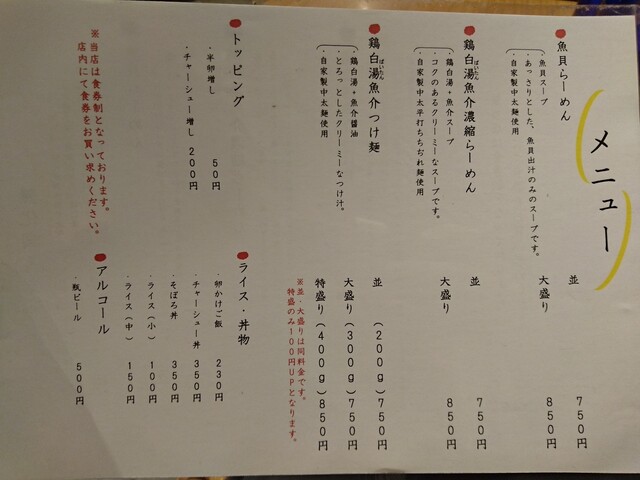 メニュー
魚貝らーめん
・魚貝スープ
・あっさりとした、魚貝出汁のみのスープです。
・自家製中太麺使用
並 750円
大盛り 850円
鶏白湯魚介濃縮らーめん
ぱいたん
・鶏白湯+魚介スープ
・コクのあるクリーミーなスープです。
・自家製中太平打ちちぢれ麺使用
並 750円
大盛り 850円
鶏白湯魚介つけ麺
ぱいたん
・鶏白湯+魚介醤油
・とろっとしたクリーミーなつけ汁。
・自家製中太麺使用
並 (200g) 750円
大盛り (300g) 750円
特盛り (400g) 850円
※並・大盛りは同料金です。
特盛のみ100円UPとなります。
トッピング
・半卵増し 50円
・チャーシュー増し 200円
※当店は食券制となっております。
店内にて食券をお買い求めください。
ライス・丼物
・卵かけご飯 230円
・チャーシュー丼 350円
・そぼろ丼 350円
・ライス(小) 100円
・ライス(中) 150円
アルコール
・瓶ビール 500円